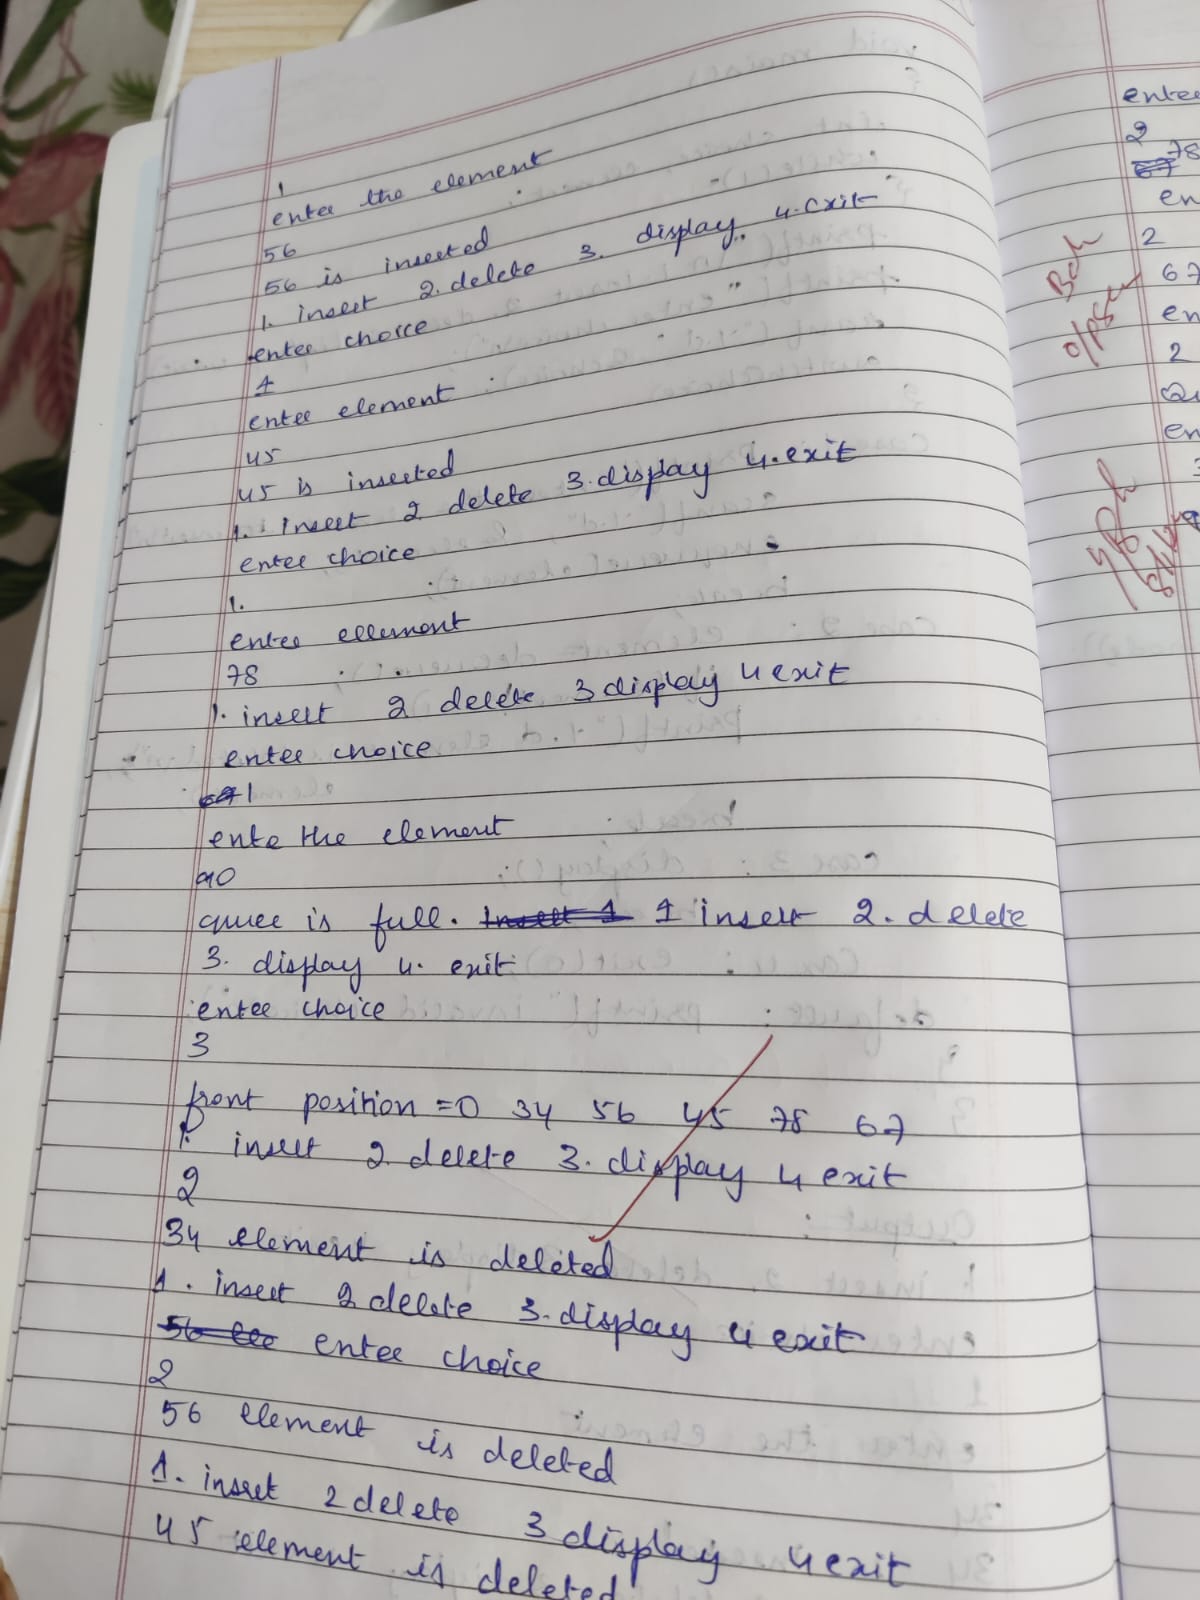 1
enter the element
56
56 is inserted
1. insert 2. delete 3. display 4. exit
enter choice
1
enter element
45
45 is inserted
1. insert 2 delete 3. display 4. exit
enter choice
1.
enter ellement
78
1. insert 2 delete 3 display 4 exit
enter choice
1
ente the element
90
is full. 1 insert 2. delete
3. display 4. exit
enter choice
3
front position = 0 34 56 45 78 67
1. insert 2 delete 3. display 4 exit
2
34 element is deleted
1. insert 2 delete 3. display 4 exit
enter choice
2
56 element is deleted
1. insert 2 delete 3 display 4 exit
45 element is deleted
enter
2
78
en
2
67
en
2
en